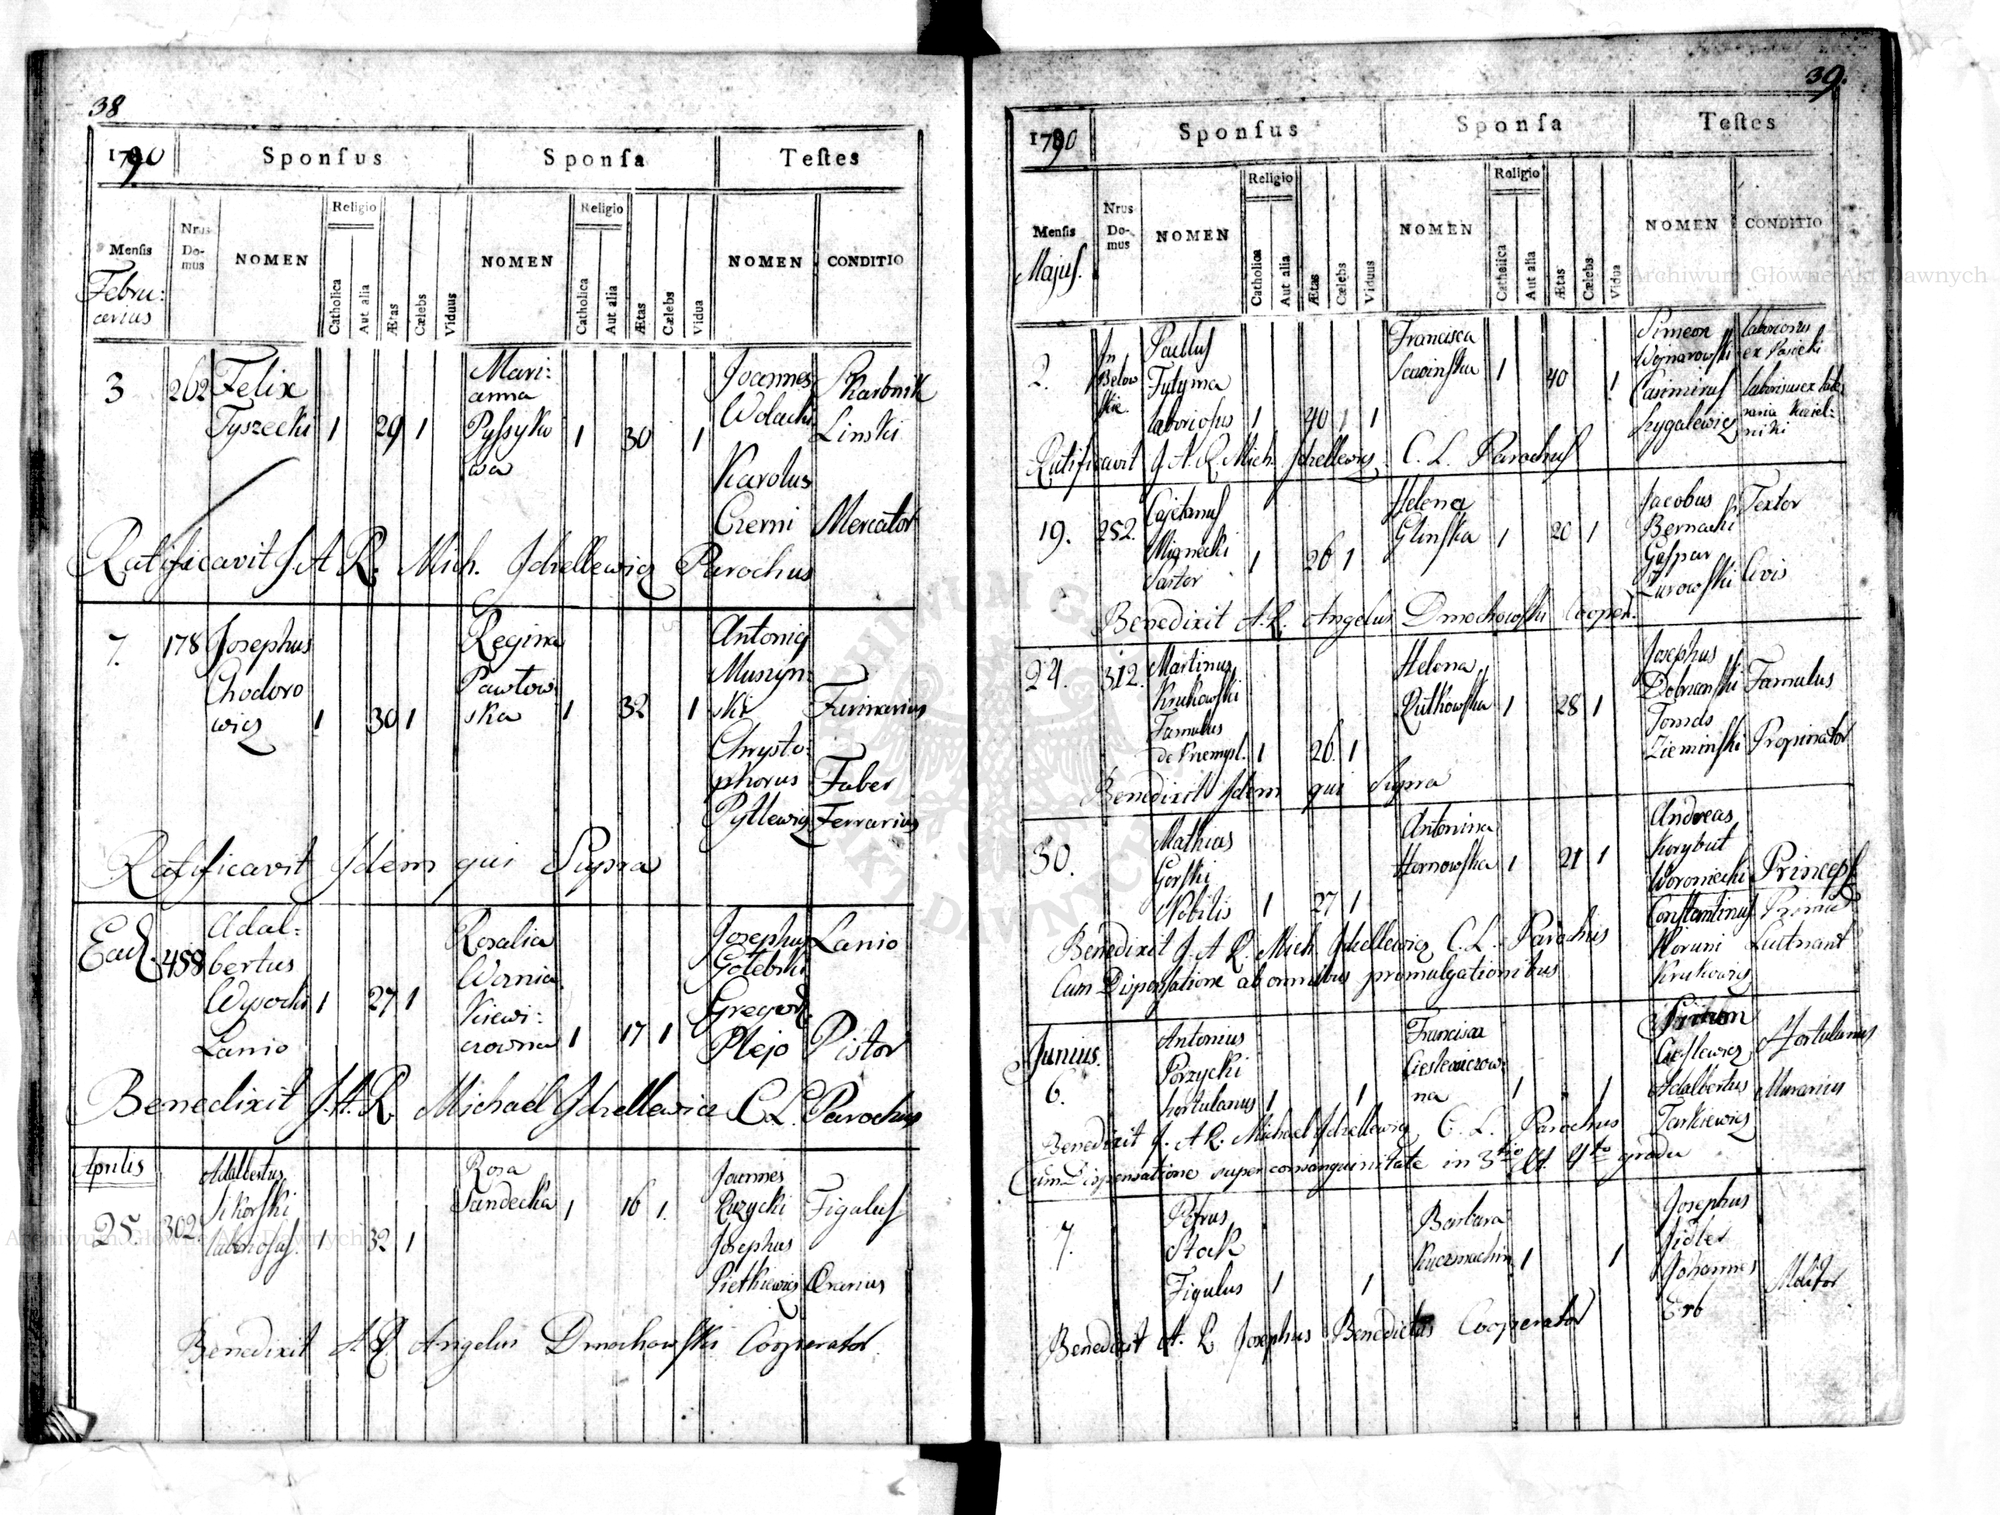 38
1790
Sponsus
Sponsa
Testes
Mensis
Nrus Domus
NOMEN
Religio
Catholica
Aut alia
Ætas
Cælebs
Viduus
NOMEN
Religio
Catholica
Aut alia
Ætas
Cælebs
Vidua
NOMEN
CONDITIO
Febru:
arius
3 262 Felix
Tyszecki 1 29 1
Mari:
anna
1 30 1
Joannes
Karolus
Czerni Mercator
Ratificavit J A R. Mich. Parochus
7. 178 Josephus
Chodoro
wicz 1 30 1
Regina
Pawłow
ska 1 32 1
Antoniy
Muszyn
ski
Chrysto:
phorus Faber
Pytlewicz Ferrarius
Ratificavit Idem qui Supra
Ead. 458
Adal:
bertus
Wysocki 1 27 1
Lanio
Rosalia
Warnia
kiewi:
czowna 1 17 1
Josephus Lanio
Gregor.
Plejo Pistor
Benedixit J. A. R. Michael C L. Parochus
Aprilis
25 302
Adalbertus
Sikorski
laboriosus. 1 32 1
Rosa
Sandecka 1 16 1.
Joannes
Ruzycki Figulus
Josephus
Pietkiewicz
Benedixit A. R Angelus Dmochowski Cooperator.
39.
1790
Sponsus
Sponsa
Testes
Mensis
Nrus Domus
NOMEN
Religio
Catholica
Aut alia
Ætas
Cælebs
Viduus
NOMEN
Religio
Catholica
Aut alia
Ætas
Cælebs
Vidua
NOMEN
CONDITIO
Majus.
2.
Paullus
Tutyma
laboriosus 1 40 1 1
Francisca
Sawinska 1 40 1
Simeon
Wojnarowski
Casimirus
Ratificavit J. A. R. Mich. C. L. Parochus
19. 252.
Cajetanus
Sartor 1 26 1
Helena
Glinska 1 20 1
Jacobus Textor
Bernacki
Gaspar
Zurowski Civis
Benedixit A. R. Angelus Dmochowski Cooper.
24. 312.
Martinus
Krukowski
Famulus
de Przemysl. 1 26. 1
Helena
Rutkowska 1 28 1
Josephus
Dobrzanski Famulus
Tomas
Zieminski Propinator
Benedixit Idem qui Supra
30.
Mathias
Gorski
Nobilis 1 27 1
Antonina
Hornowska 1 21 1
Andreas
Korybut
Woroniecki Princeps
Constantinus
Krukowicz
Benedixit J. A R. Mich. C. L. Parochus
Cum Dispensatione ab omnibus promulgationibus
Junius.
6.
Antonius
Porzycki
hortulanus 1 1
Francisca
na 1 1
Hortulanus
Adalbertus Murarius
Benedixit J. A R. Michael C. L. Parochus
Cum Dispensatione super consanguinitate in 3tio et 4to gradu
7.
Petrus
Stok
Figulus 1 1
Barbara
1 1
Josephus
Jidler
Johannes Molitor
Erb
Benedixit A. R Josephus Benedictus Cooperator
Archiwum Główne Akt Dawnych
Archiwum Główne Akt Dawnych